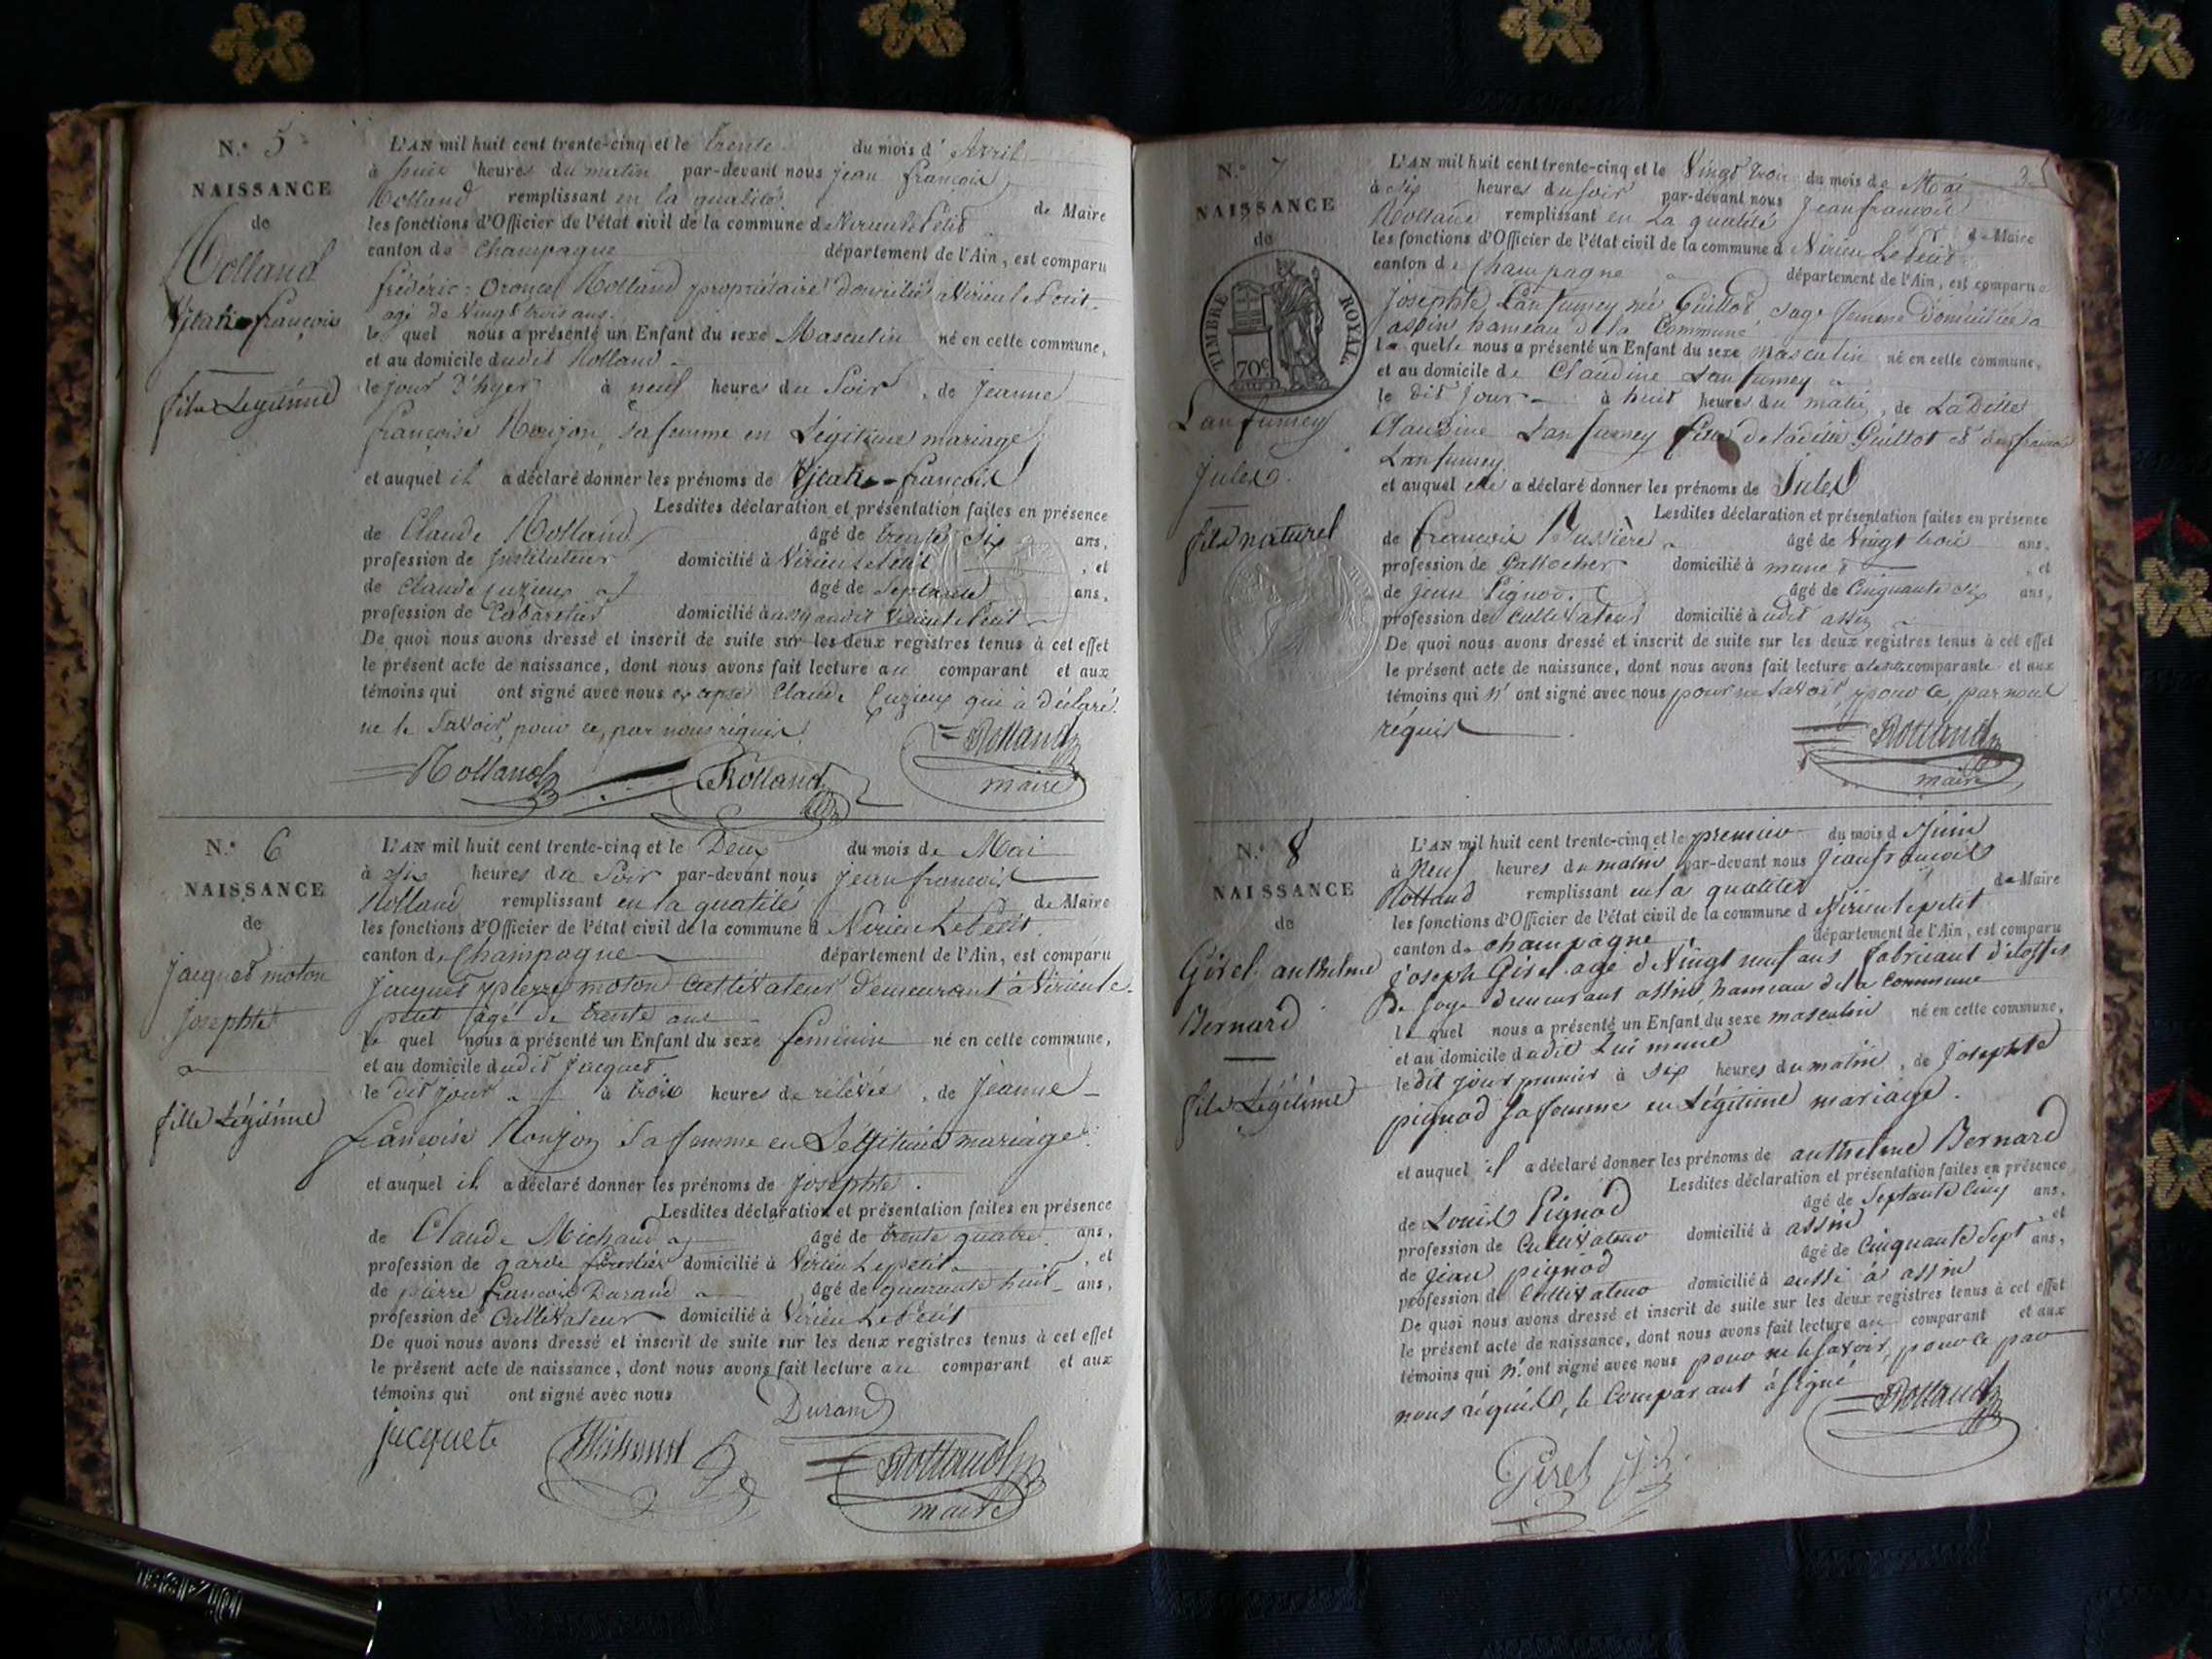 N.° 5
NAISSANCE
de
Rolland
françois
fils Légitime
L'AN mil huit cent trente-cinq et le trente du mois d' Avril
à huit heures du matin par-devant nous jean françois
Rolland remplissant en la qualité de Maire
les fonctions d'Officier de l'état civil de la commune de Virieu le Petit
canton de Champagne département de l'Ain, est comparu
frédéric Rolland propriétaire domicilié à Virieu le Petit
agé de Vingt trois ans.
le quel nous a présenté un Enfant du sexe Masculin né en cette commune,
et au domicile dudit Rolland
le jour D'hyer à neuf heures du Soir, de Jeanne
françoise sa femme en Légitime mariage
et auquel il a déclaré donner les prénoms de françois
Lesdites déclaration et présentation faites en présence
de Claude Rolland âgé de trente six ans,
profession de Instituteur domicilié à Virieu le Petit, et
de Claude Cuzieux âgé de Septante ans,
profession de Cabaretier domicilié à Virieu le Petit
De quoi nous avons dressé et inscrit de suite sur les deux registres tenus à cet effet
le présent acte de naissance, dont nous avons fait lecture au comparant et aux
témoins qui ont signé avec nous excepté Claude Cuzieux qui à déclaré
ne le Savoir, pour ce, par nous réquis
Rolland Rolland Rolland
maire
N.° 6
NAISSANCE
de
jacquet moton
josephte
fille Légitime
L'AN mil huit cent trente-cinq et le Deux du mois de Mai
à six heures du Soir par-devant nous jean francois
Rolland remplissant en la qualité de Maire
les fonctions d'Officier de l'état civil de la commune d Virieu Le Petit
canton de Champagne département de l'Ain, est comparu
jacquet pierre moton cultivateur demeurant à Virieu le
petit agé de trente ans
le quel nous a présenté un Enfant du sexe féminin né en cette commune,
et au domicile dudit jacquet
le dit jour à trois heures de relévée, de Jeanne
françoise sa femme en Légitime mariage
et auquel il a déclaré donner les prénoms de josephte.
Lesdites déclaration et présentation faites en présence
de Claude Michaud âgé de trente quatre ans,
profession de garde forestier domicilié à Virieu le petit, et
de pierre francois Durand âgé de quarante huit ans,
profession de Cultivateur domicilié à Virieu Le Petit
De quoi nous avons dressé et inscrit de suite sur les deux registres tenus à cet effet
le présent acte de naissance, dont nous avons fait lecture au comparant et aux
témoins qui ont signé avec nous
Durand
jacquet Michaud Rolland
maire
N.° 7
NAISSANCE
de
TIMBRE ROYAL
70c
Lanfumey
Jules.
fils naturel
3
L'AN mil huit cent trente-cinq et le Vingt trois du mois de Mai
à six heures du soir par-devant nous Jean francois
Rolland remplissant en La qualité de Maire
les fonctions d'Officier de l'état civil de la commune d Virieu Le Petit
canton de Champagne département de l'Ain, est comparue
Josephte Lanfumey née Guillot sage femme domiciliée a
assin hameau de la Commune
la quelle nous a présenté un Enfant du sexe masculin né en cette commune,
et au domicile de Claudine Lanfumey
le dit jour à huit heures du matin, de Ladite
Claudine Lanfumey fille de Ladite Guillot et
Lanfumey
et auquel elle a déclaré donner les prénoms de Jules
Lesdites déclaration et présentation faites en présence
de francois Bussière âgé de Vingt trois ans,
profession de domicilié à, et
de jean Pignod âgé de Cinquante six ans,
profession de Cultivateur domicilié à udit assin
De quoi nous avons dressé et inscrit de suite sur les deux registres tenus à cet effet
le présent acte de naissance, dont nous avons fait lecture a comparante et aux
témoins qui n' ont signé avec nous pour ne Savoir, pour ce par nous
requis
Rolland
maire
N.° 8
NAISSANCE
de
Girel anthelme
Bernard
fils Légitime
L'AN mil huit cent trente-cinq et le premier du mois d Juin
à Neuf heures du matin par-devant nous Jean francois
Rolland remplissant en la qualité de Maire
les fonctions d'Officier de l'état civil de la commune d Virieu le petit
canton de champagne département de l'Ain, est comparu
joseph Girel agé de Vingt neuf ans fabricant d'étoffes
de soye demeurant assin, hameau de la Commune
le quel nous a présenté un Enfant du sexe masculin né en cette commune,
et au domicile dudit Lui meme
le dit jour premier à six heures du matin, de Josephte
pignod sa femme en Légitime mariage.
et auquel il a déclaré donner les prénoms de anthelme Bernard
Lesdites déclaration et présentation faites en présence
de Louis Pignod âgé de Septante Cinq ans,
profession de Cultivateur domicilié à assin, et
de jean pignod âgé de Cinquante Sept ans,
profession de Cultivateur domicilié à aussi à assin
De quoi nous avons dressé et inscrit de suite sur les deux registres tenus à cet effet
le présent acte de naissance, dont nous avons fait lecture au comparant et aux
témoins qui n'ont signé avec nous pour ne le savoir, pour ce par
nous réquis, le Comparant à signé
Rolland
Girel